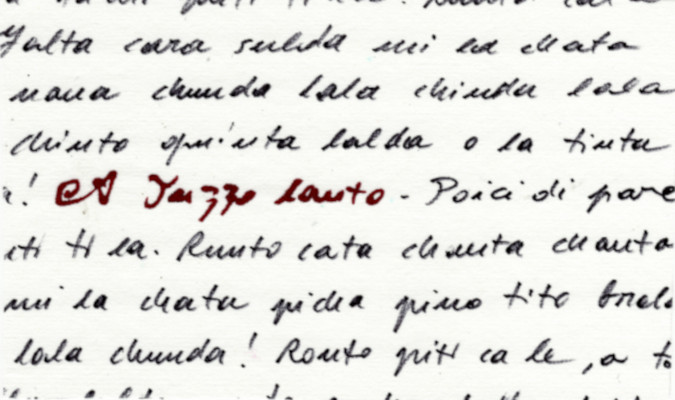 Yalta cara sulda mi la chata
nana chunda lala chinda lala
chinto quinta lalda o la tinta
! A Jazzo lanto - Poici di pare
iti ti la. Runto cata chunta chanta
mi la chata picha pino tito
lala chunda! Ronto piti ca le, a to